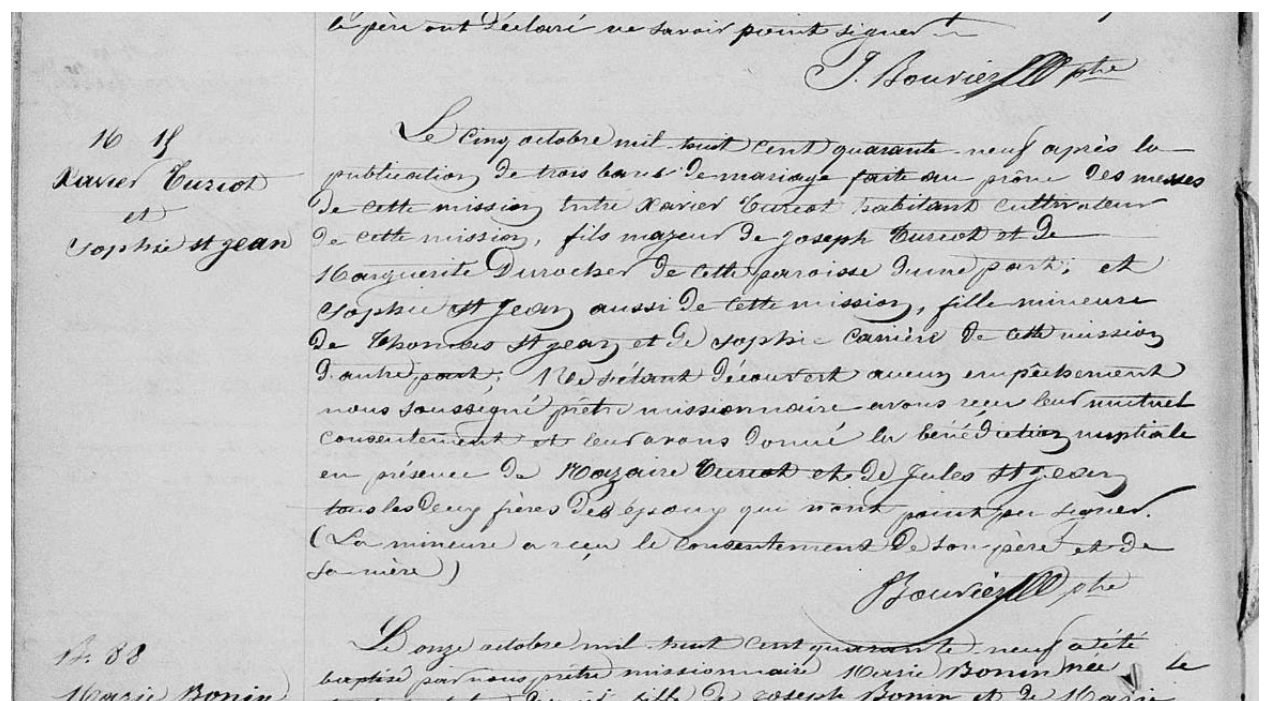 le père ont déclaré ne savoir point signer
J. Bouvier ptre
M 15
Xavier Turcot
et
Sophie St Jean
Le cinq octobre mil-huit cent quarante-neuf après la
publication de trois bans de mariage faite au prône des messes
de cette mission entre Xavier Turcot habitant cultivateur
de cette mission, fils majeur de Joseph Turcot et de
Marguerite Durocher de cette paroisse d'une part; et
Sophie St Jean aussi de cette mission, fille mineure
de Thomas St Jean et de Sophie Carrière de cette mission
d'autre part; Ne s'étant découvert aucun empêchement
nous soussigné prêtre missionnaire avons reçu leur mutuel
consentement et leur avons donné la bénédiction nuptiale
en présence de Nazaire Turcot et de Jules St Jean
tous les deux frères des époux qui n'ont point pu signer.
(La mineure a reçu le consentement de son père et de
sa mère)
Bouvier ptre
B. 88
Marie Bonin
Le onze octobre mil-huit cent quarante-neuf a été
baptisé par nous prêtre missionnaire Marie Bonin née le
fille de Joseph Bonin et de Marie